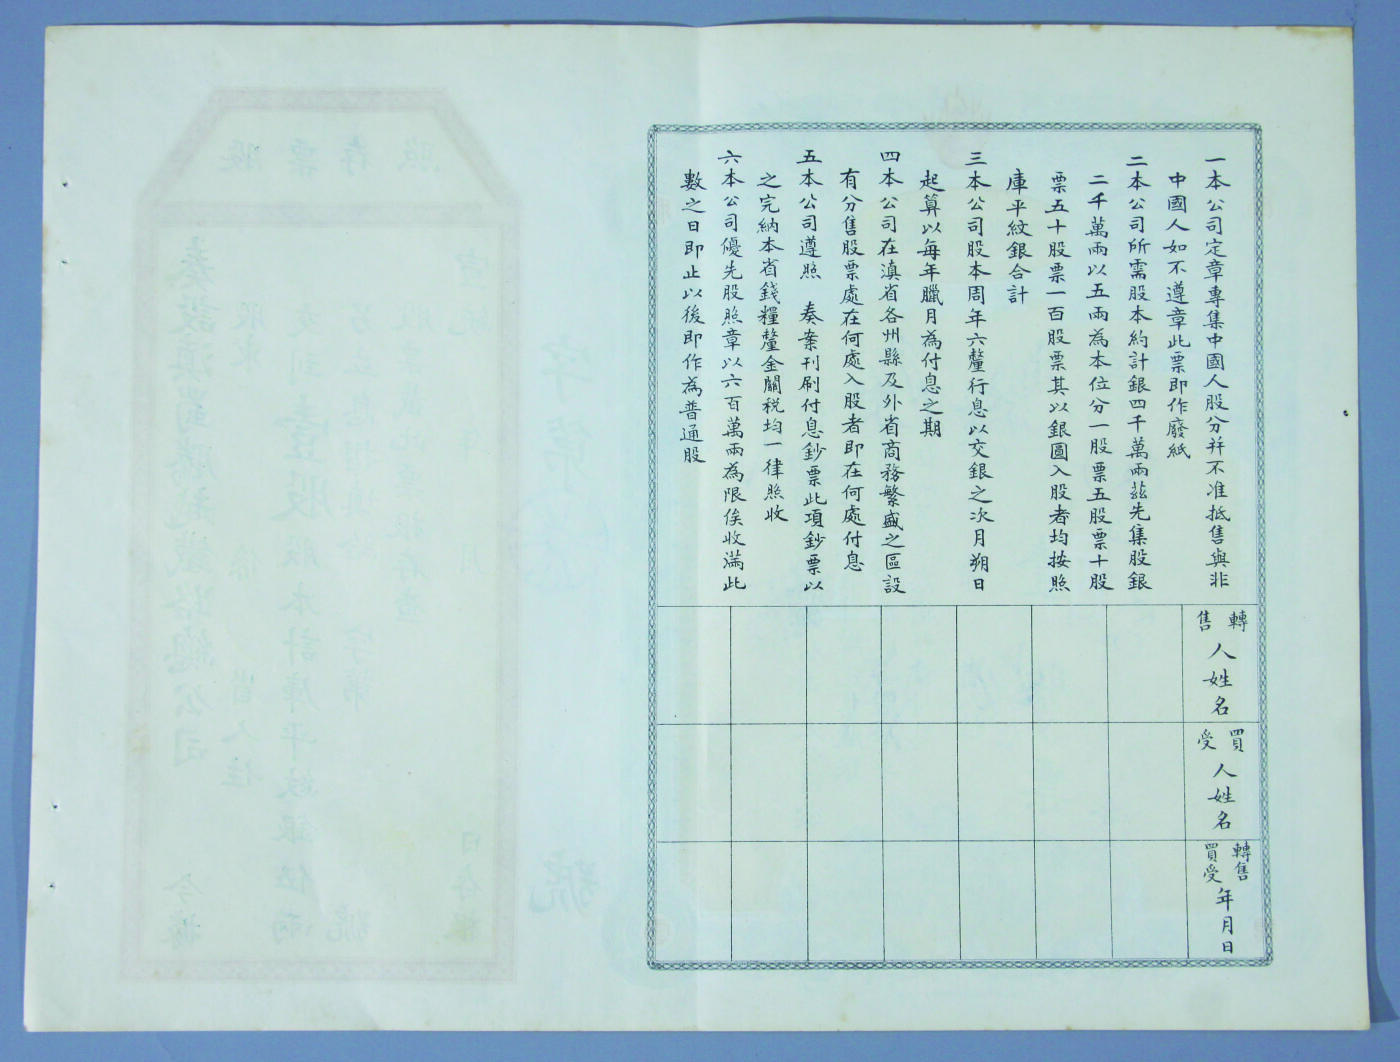 一本公司定章專集中國人股分并不准抵售與非
中國人如不遵章此票即作廢紙
二本公司所需股本約計銀四千萬兩茲先集股銀
二千萬兩以五兩為本位分一股票五股票十股
票五十股票一百股票其以銀圓入股者均按照
庫平紋銀合計
三本公司股本周年六釐行息以交銀之次月朔日
起算以每年臘月為付息之期
四本公司在滇省各州縣及外省商務繁盛之區設
有分售股票處在何處入股者即在何處付息
五本公司遵照　奏案刊刷付息鈔票此項鈔票以
之完納本省錢糧釐金關稅均一律照收
六本公司優先股照章以六百萬兩為限俟收滿此
數之日即止以後即作為普通股
轉售人姓名
買受人姓名
轉售買受年月日
股票存照
奏設滇蜀騰越鐵路總公司　今據
字第　號